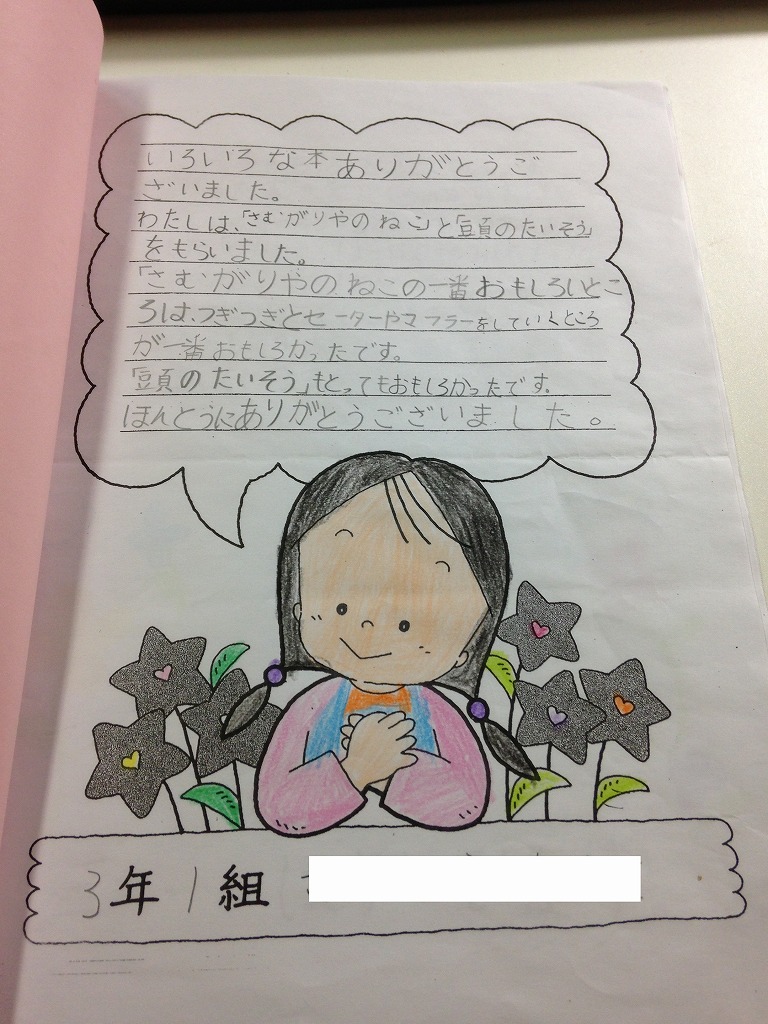 いろいろな本ありがとうご
ざいました。
わたしは、「さむがりやのねこ」と「豆頁のたいそう」
をもらいました。
「さむがりやのねこの一番おもしろいとこ
ろは、つぎつぎとセーターやマフラーをしていくところ
が一番おもしろかったです。
「豆頁のたいそう」もとってもおもしろかったです。
ほんとうにありがとうございました。
3年1組